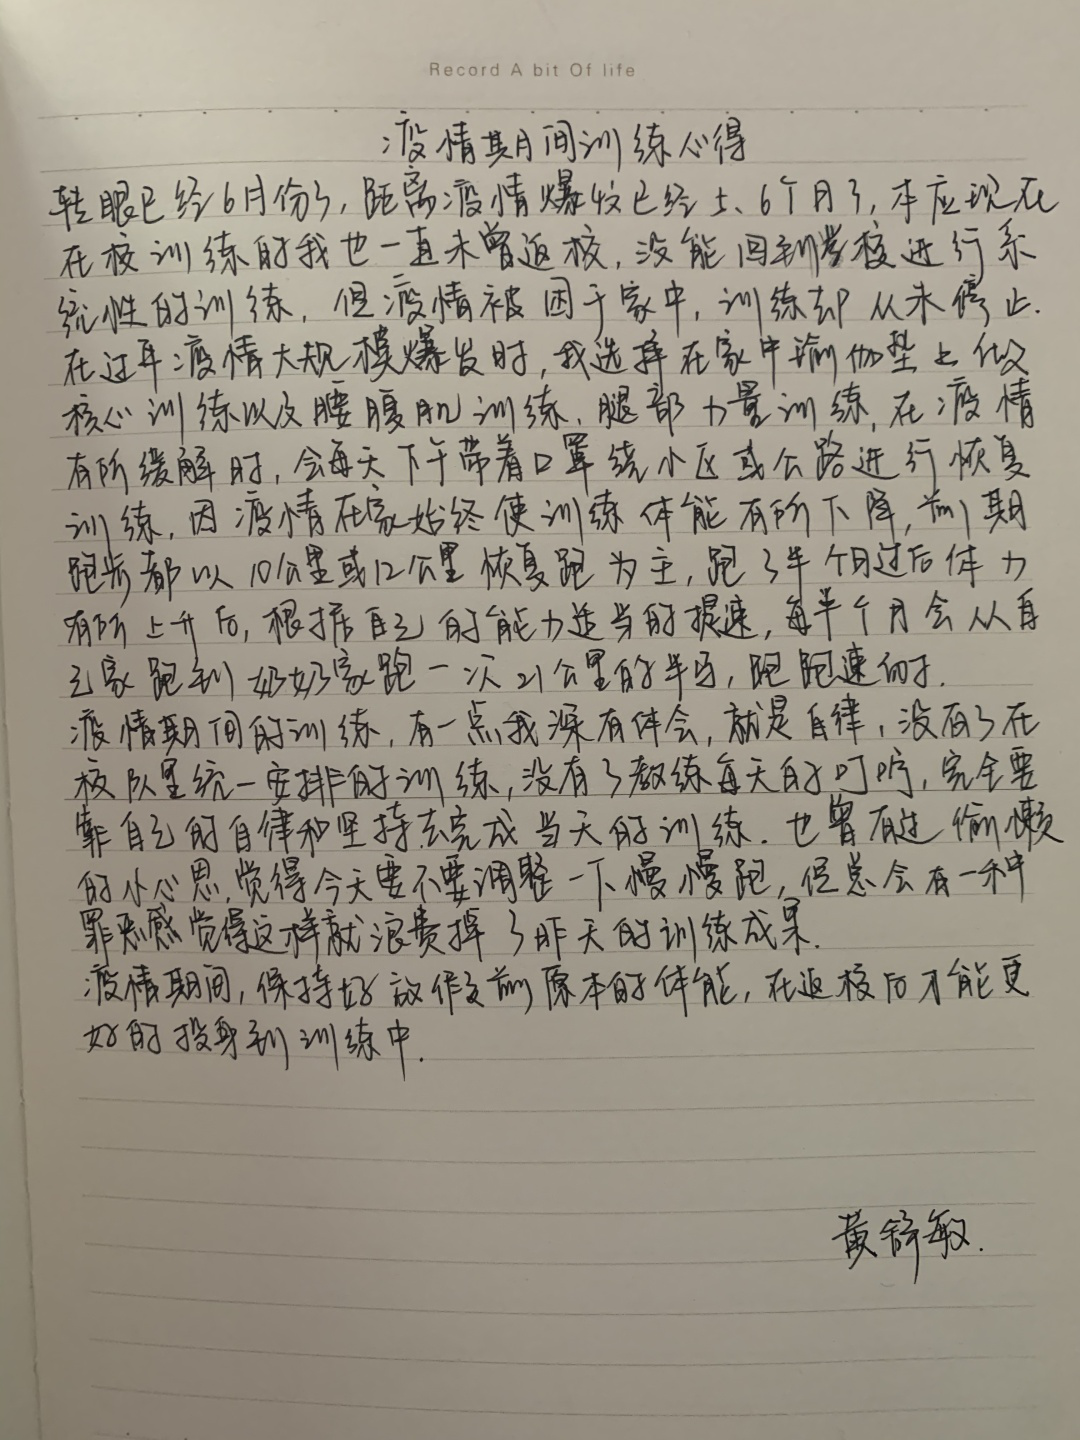 Record A bit Of life
疫情期间训练心得
转眼已经6月份了,距离疫情爆发已经5、6个月了,本应现在
在校训练的我也一直未曾返校,没能回到学校进行系
统性的训练,但疫情被困于家中,训练却从未停止.
在过年疫情大规模爆发时,我选择在家中瑜伽垫上做
核心训练以及腰腹肌训练、腿部力量训练,在疫情
有所缓解时,会每天下午带着口罩绕小区或公路进行恢复
训练,因疫情在家始终使训练体能有所下降,前期
跑步都以10公里或12公里恢复跑为主,跑了半个月过后体力
有所上升后,根据自己的能力适当的提速,每半个月会从自
己家跑到奶奶家跑一次21公里的半马,跑跑速耐.
疫情期间的训练,有一点我深有体会,就是自律,没有了在
校队里统一安排的训练,没有了教练每天的叮咛,完全要
靠自己的自律和坚持去完成当天的训练.也曾有过偷懒
的小心思,觉得今天要不要调整一下慢慢跑,但总会有一种
罪恶感觉得这样就浪费掉了昨天的训练成果.
疫情期间,保持好放假前原本的体能,在返校后才能更
好的投身到训练中.
黄舒敏.